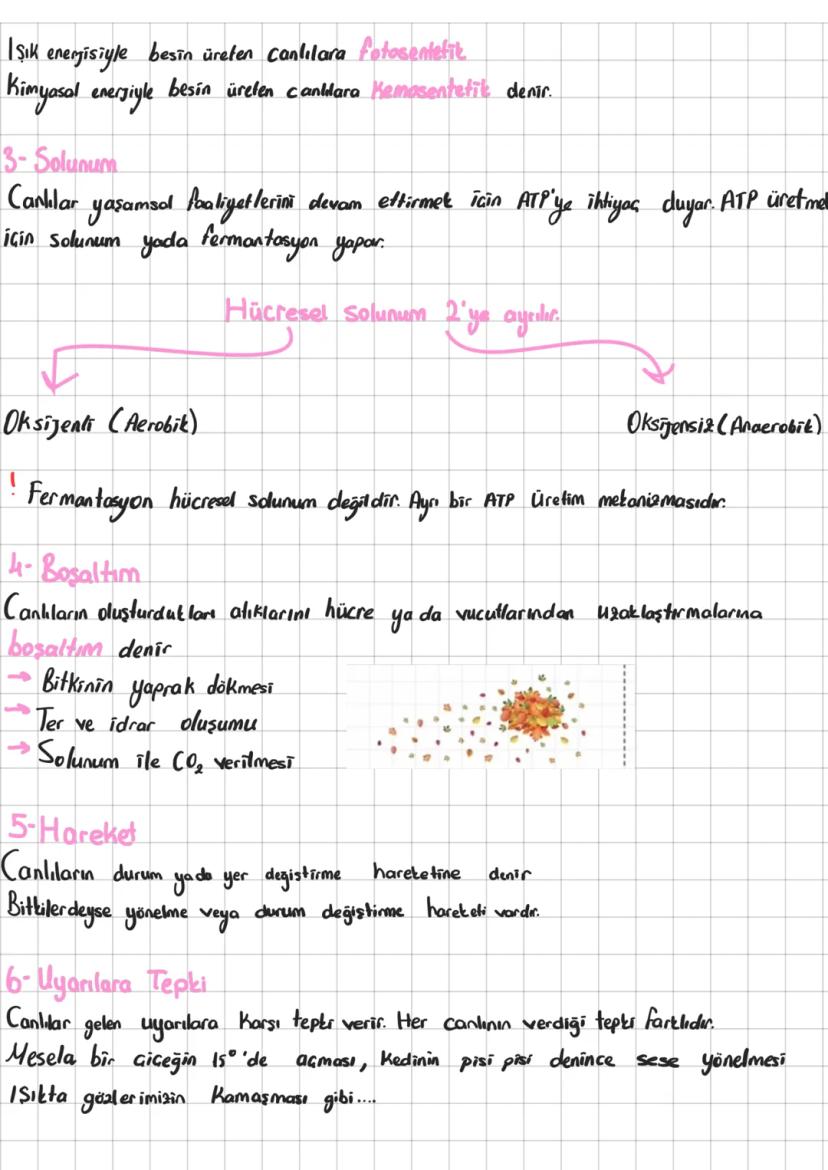 Işık enerjisiyle besin üreten canlılara fotosentetik
Kimyasal enerjiyle besin üreten canlılara Kemosentetik denir.
3- Solunum
Canlılar yaşamsal faaliyetlerini devam ettirmek için ATP'ye ihtiyaç duyar. ATP üretmek
için solunum yada fermantasyon yapar.
Hücresel solunum 2'ye ayrılır.
Oksijenli (Aerobik)
Oksijensiz (Anaerobik)
! Fermantasyon hücresel solunum değildir. Ayrı bir ATP üretim mekanizmasıdır.
4- Boşaltım
Canlıların oluşturdukları atıklarını hücre ya da vucutlarından uzaklaştırmalarına
boşaltım denir
→ Bitkinin yaprak dökmesi
→ Ter ve idrar oluşumu
→ Solunum ile CO₂ verilmesi
5-Hareket
Canlıların durum yada yer değiştirme hareketine denir
Bitkilerdeyse yönelme veya durum değiştirme hareketi vardır.
6- Uyarılara Tepki
Canlılar gelen uyarılara karşı tepki verir. Her canlının verdiği tepki farklıdır.
Mesela bir çiçeğin 15° 'de açması, kedinin pisi pisi denince sese yönelmesi
Işıkta gözlerimizin kamaşması gibi....